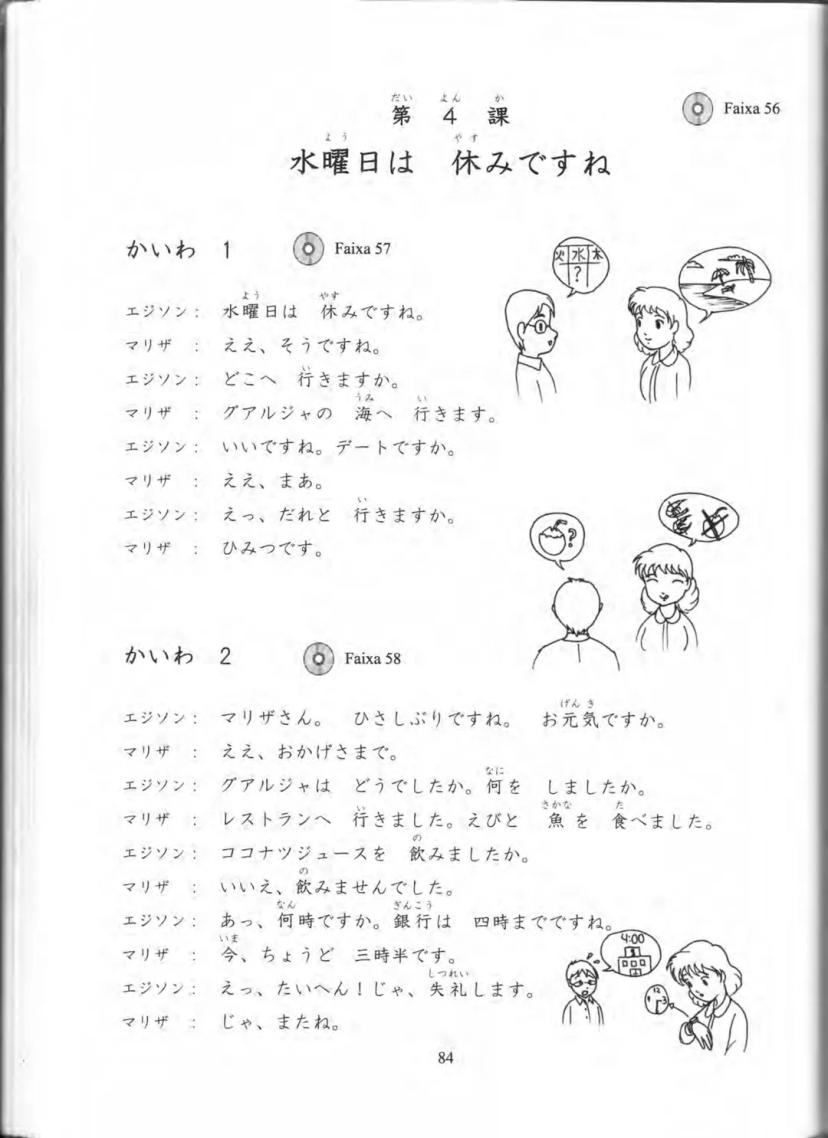 だい よん か
第 4 課
Faixa 56
よう やす
水曜日は 休みですね
かいわ 1
Faixa 57
火 水 木
?
よう やす
エジソン: 水曜日は 休みですね。
マリザ : ええ、そうですね。
い
エジソン: どこへ 行きますか。
うみ い
マリザ : グアルジャの 海へ 行きます。
エジソン: いいですね。デートですか。
マリザ : ええ、まあ。
い
エジソン: えっ、だれと 行きますか。
マリザ : ひみつです。
?
かいわ 2
Faixa 58
げんき
エジソン: マリザさん。 ひさしぶりですね。 お元気ですか。
マリザ : ええ、おかげさまで。
なに
エジソン: グアルジャは どうでしたか。何を しましたか。
い さかな た
マリザ : レストランへ 行きました。えびと 魚を 食べました。
の
エジソン: ココナツジュースを 飲みましたか。
の
マリザ : いいえ、飲みませんでした。
なん ぎんこう
エジソン: あっ、何時ですか。銀行は 四時までですね。
いま
マリザ : 今、ちょうど 三時半です。
しつれい
エジソン: えっ、たいへん!じゃ、失礼します。
マリザ : じゃ、またね。
4:00
$
12
3
84